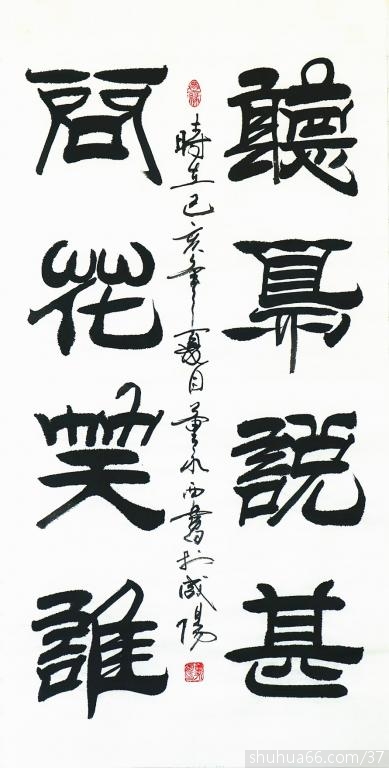 聽鳥說甚
問花笑誰
時在己亥年夏日董永西書於咸陽
shuhua66.com/37